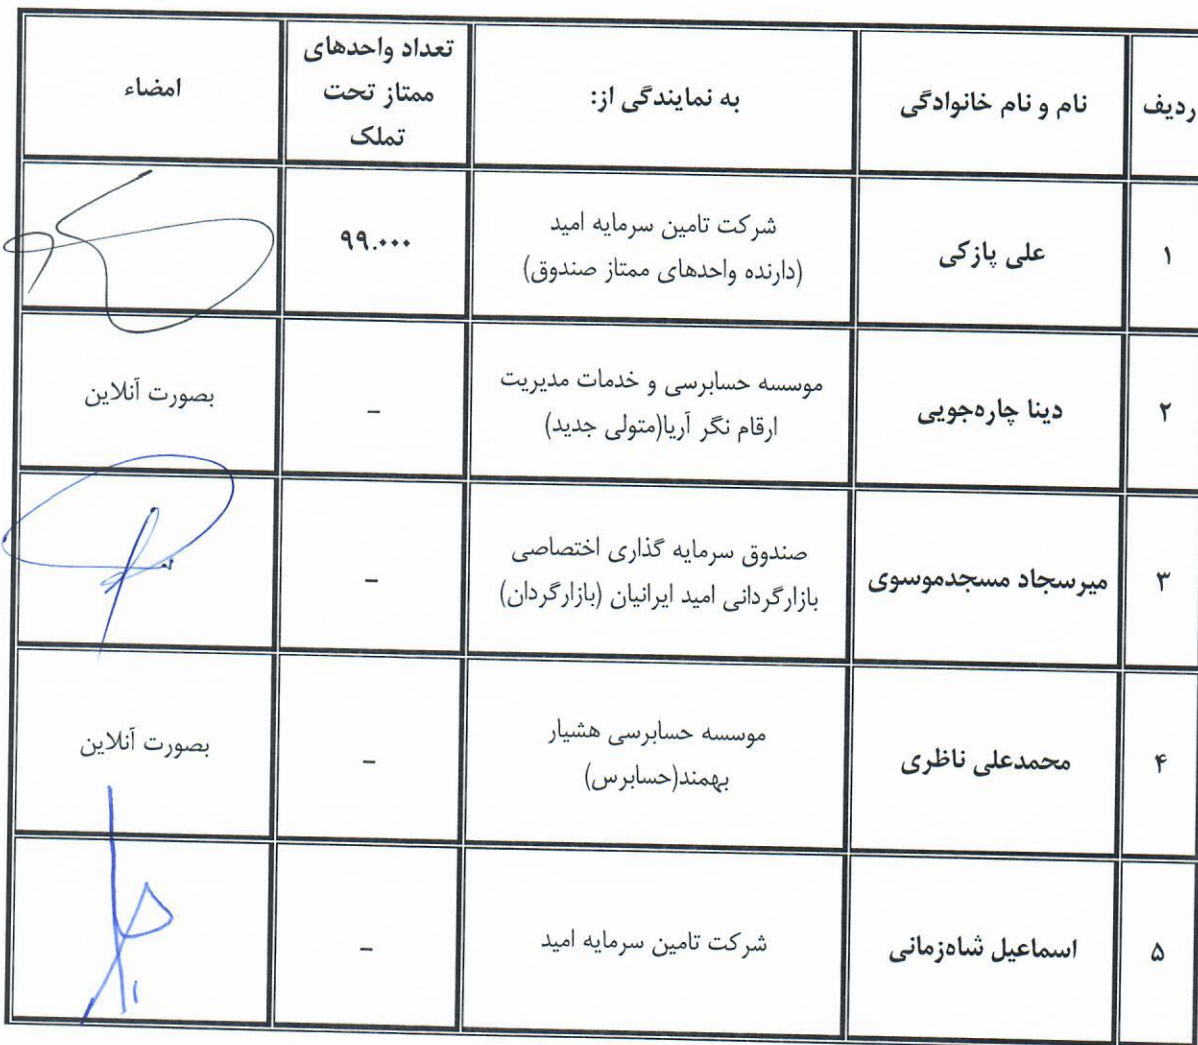 ردیف
نام و نام خانوادگی
به نمایندگی از:
تعداد واحدهای
ممتاز تحت
تملک
امضاء
۱
علی پازکی
شرکت تامین سرمایه امید
(دارنده واحدهای ممتاز صندوق)
۹۹.۰۰۰
۲
دینا چاره‌جویی
موسسه حسابرسی و خدمات مدیریت
ارقام نگر آریا(متولی جدید)
–
بصورت آنلاین
۳
میرسجاد مسجدموسوی
صندوق سرمایه گذاری اختصاصی
بازارگردانی امید ایرانیان (بازارگردان)
–
۴
محمدعلی ناظری
موسسه حسابرسی هشیار
بهمند(حسابرس)
–
بصورت آنلاین
۵
اسماعیل شاه‌زمانی
شرکت تامین سرمایه امید
–